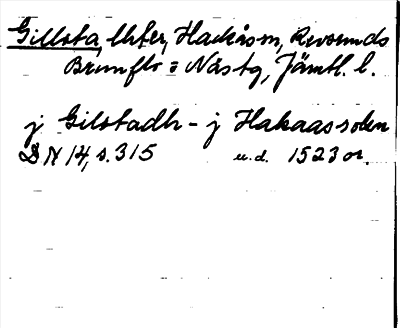 Gillsta, Utter, Hackåssn, Revsunds
Brunflo o Näs tg, Jämtl. l.
j Gilstadh - j Hakaas soken
DN 14, s. 315 u.d. 1523 or.